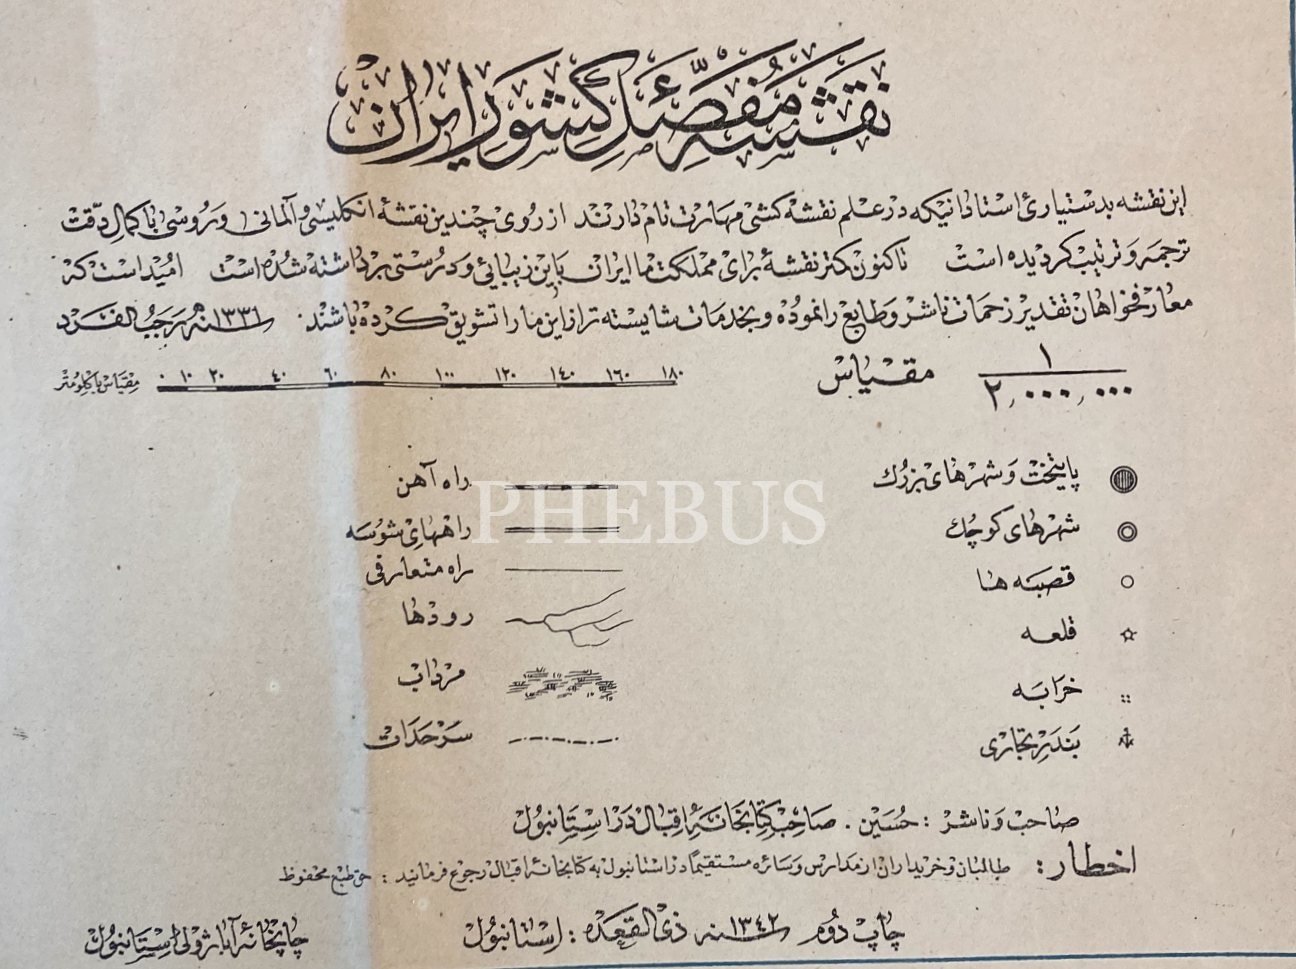 نقشه مفصل کشور ایران
این نقشه بدستیاریٔ استادانیکه در علم نقشه کشی مهارت تام دارند از روی چندین نقشهٔ انکلیسی و آلمانی و روسی با کمال دقت
ترجمه و ترتیب کردیده است تاکنون کمتر نقشهٔ برای مملکت ما ایران باین زیبائی و درستی برداشته شده است امید است که
معارفخواهان تقدیر زحمات ناشر و طابع را نموده و بخدمات شایسته تر از این ما را تشویق کرده باشند. سنه ١٣٣١ رجب الفرد
مقیاس ١ / ٢,٠٠٠,٠٠٠
مقیاس با کلومتر ٠ ١٠ ٢٠ ٤٠ ٦٠ ٨٠ ١٠٠ ١٢٠ ١٤٠ ١٦٠ ١٨٠
پایتخت و شهرهای بزرك
شهرهای کوچك
قصبه ها
قلعه
خرابه
بندر تجاری
راه آهن
راههای شوسه
راه متعارفی
رودها
مرداب
سرحدات
PHEBUS
صاحب و ناشر : حسین . صاحب کتابخانهٔ اقبال در استانبول
اخطار : طالبان و خریداران از مدارس و سائره مستقیماً در استانبول به کتابخانهٔ اقبال رجوع فرمایند : حق طبع محفوظ
چاپ دوم سنه ١٣٤٢ ذی القعده : استانبول
چاپخانهٔ استانبول